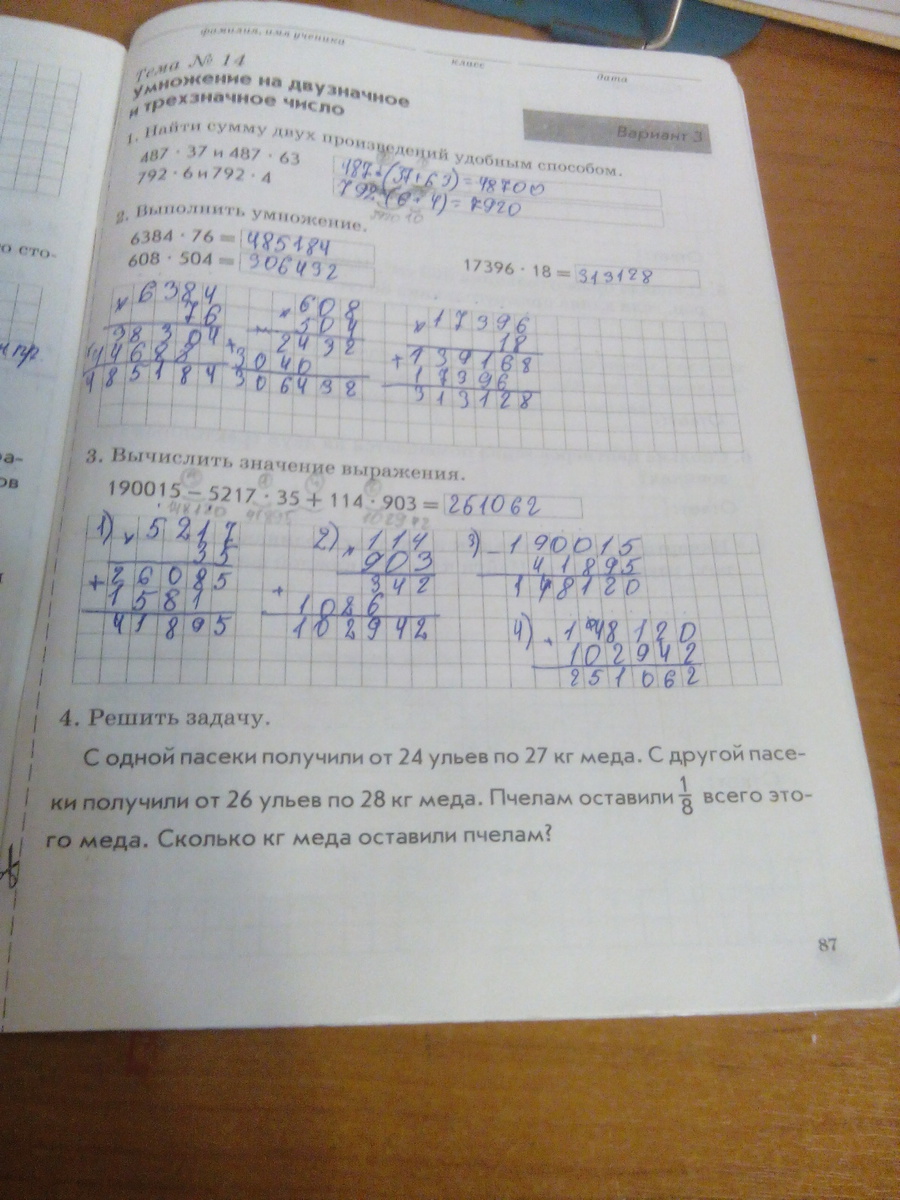 фамилия, имя ученика
класс
дата
Тема № 14
умножение на двузначное
и трехзначное число
Вариант 3
1. Найти сумму двух произведений удобным способом.
487 · 37 и 487 · 63
487·(37+63)=48700
792 · 6 и 792 · 4
792·(6+4)=7920
2. Выполнить умножение.
6384 · 76 = 485184
608 · 504 = 306432
17396 · 18 = 313128
× 6384
76
38304
44688
485184
× 608
504
+ 2432
3040
306432
× 17396
18
+ 139168
17396
313128
3. Вычислить значение выражения.
190015 – 5217 · 35 + 114 · 903 = 261062
148120 41895 102942
1) × 5217
35
+ 26085
1581
41895
2) × 114
903
+ 342
1026
102942
3) – 190015
41895
148120
4) + 148120
102942
251062
4. Решить задачу.
С одной пасеки получили от 24 ульев по 27 кг меда. С другой пасе-
ки получили от 26 ульев по 28 кг меда. Пчелам оставили 1/8 всего это-
го меда. Сколько кг меда оставили пчелам?
87